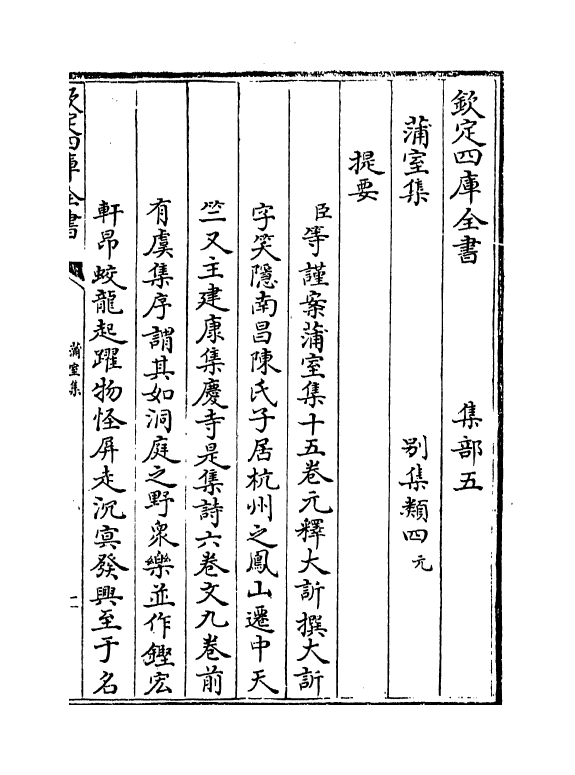 欽定四庫全書　集部五
蒲室集　別集類四元
提要
臣等謹案蒲室集十五卷元釋大訢撰大訢
字笑隱南昌陳氏子居杭州之鳳山遷中天
竺又主建康集慶寺是集詩六卷文九卷前
有虞集序謂其如洞庭之野衆樂並作鏗宏
軒昂蛟龍起躍物怪屏走沉寞發興至于名
欽定四庫全書
蒲室集